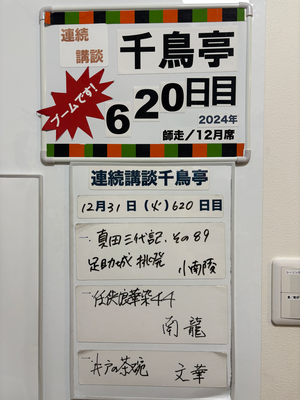 連続
講談
千鳥亭
ブームです!
620日目
2024年
師走／12月席
連続講談千鳥亭
12月31日(火)620日目
一.真田三代記、その89
足助城挑発 小南陵
一.任侠浪華染44
南龍
一.井戸の茶碗 文華